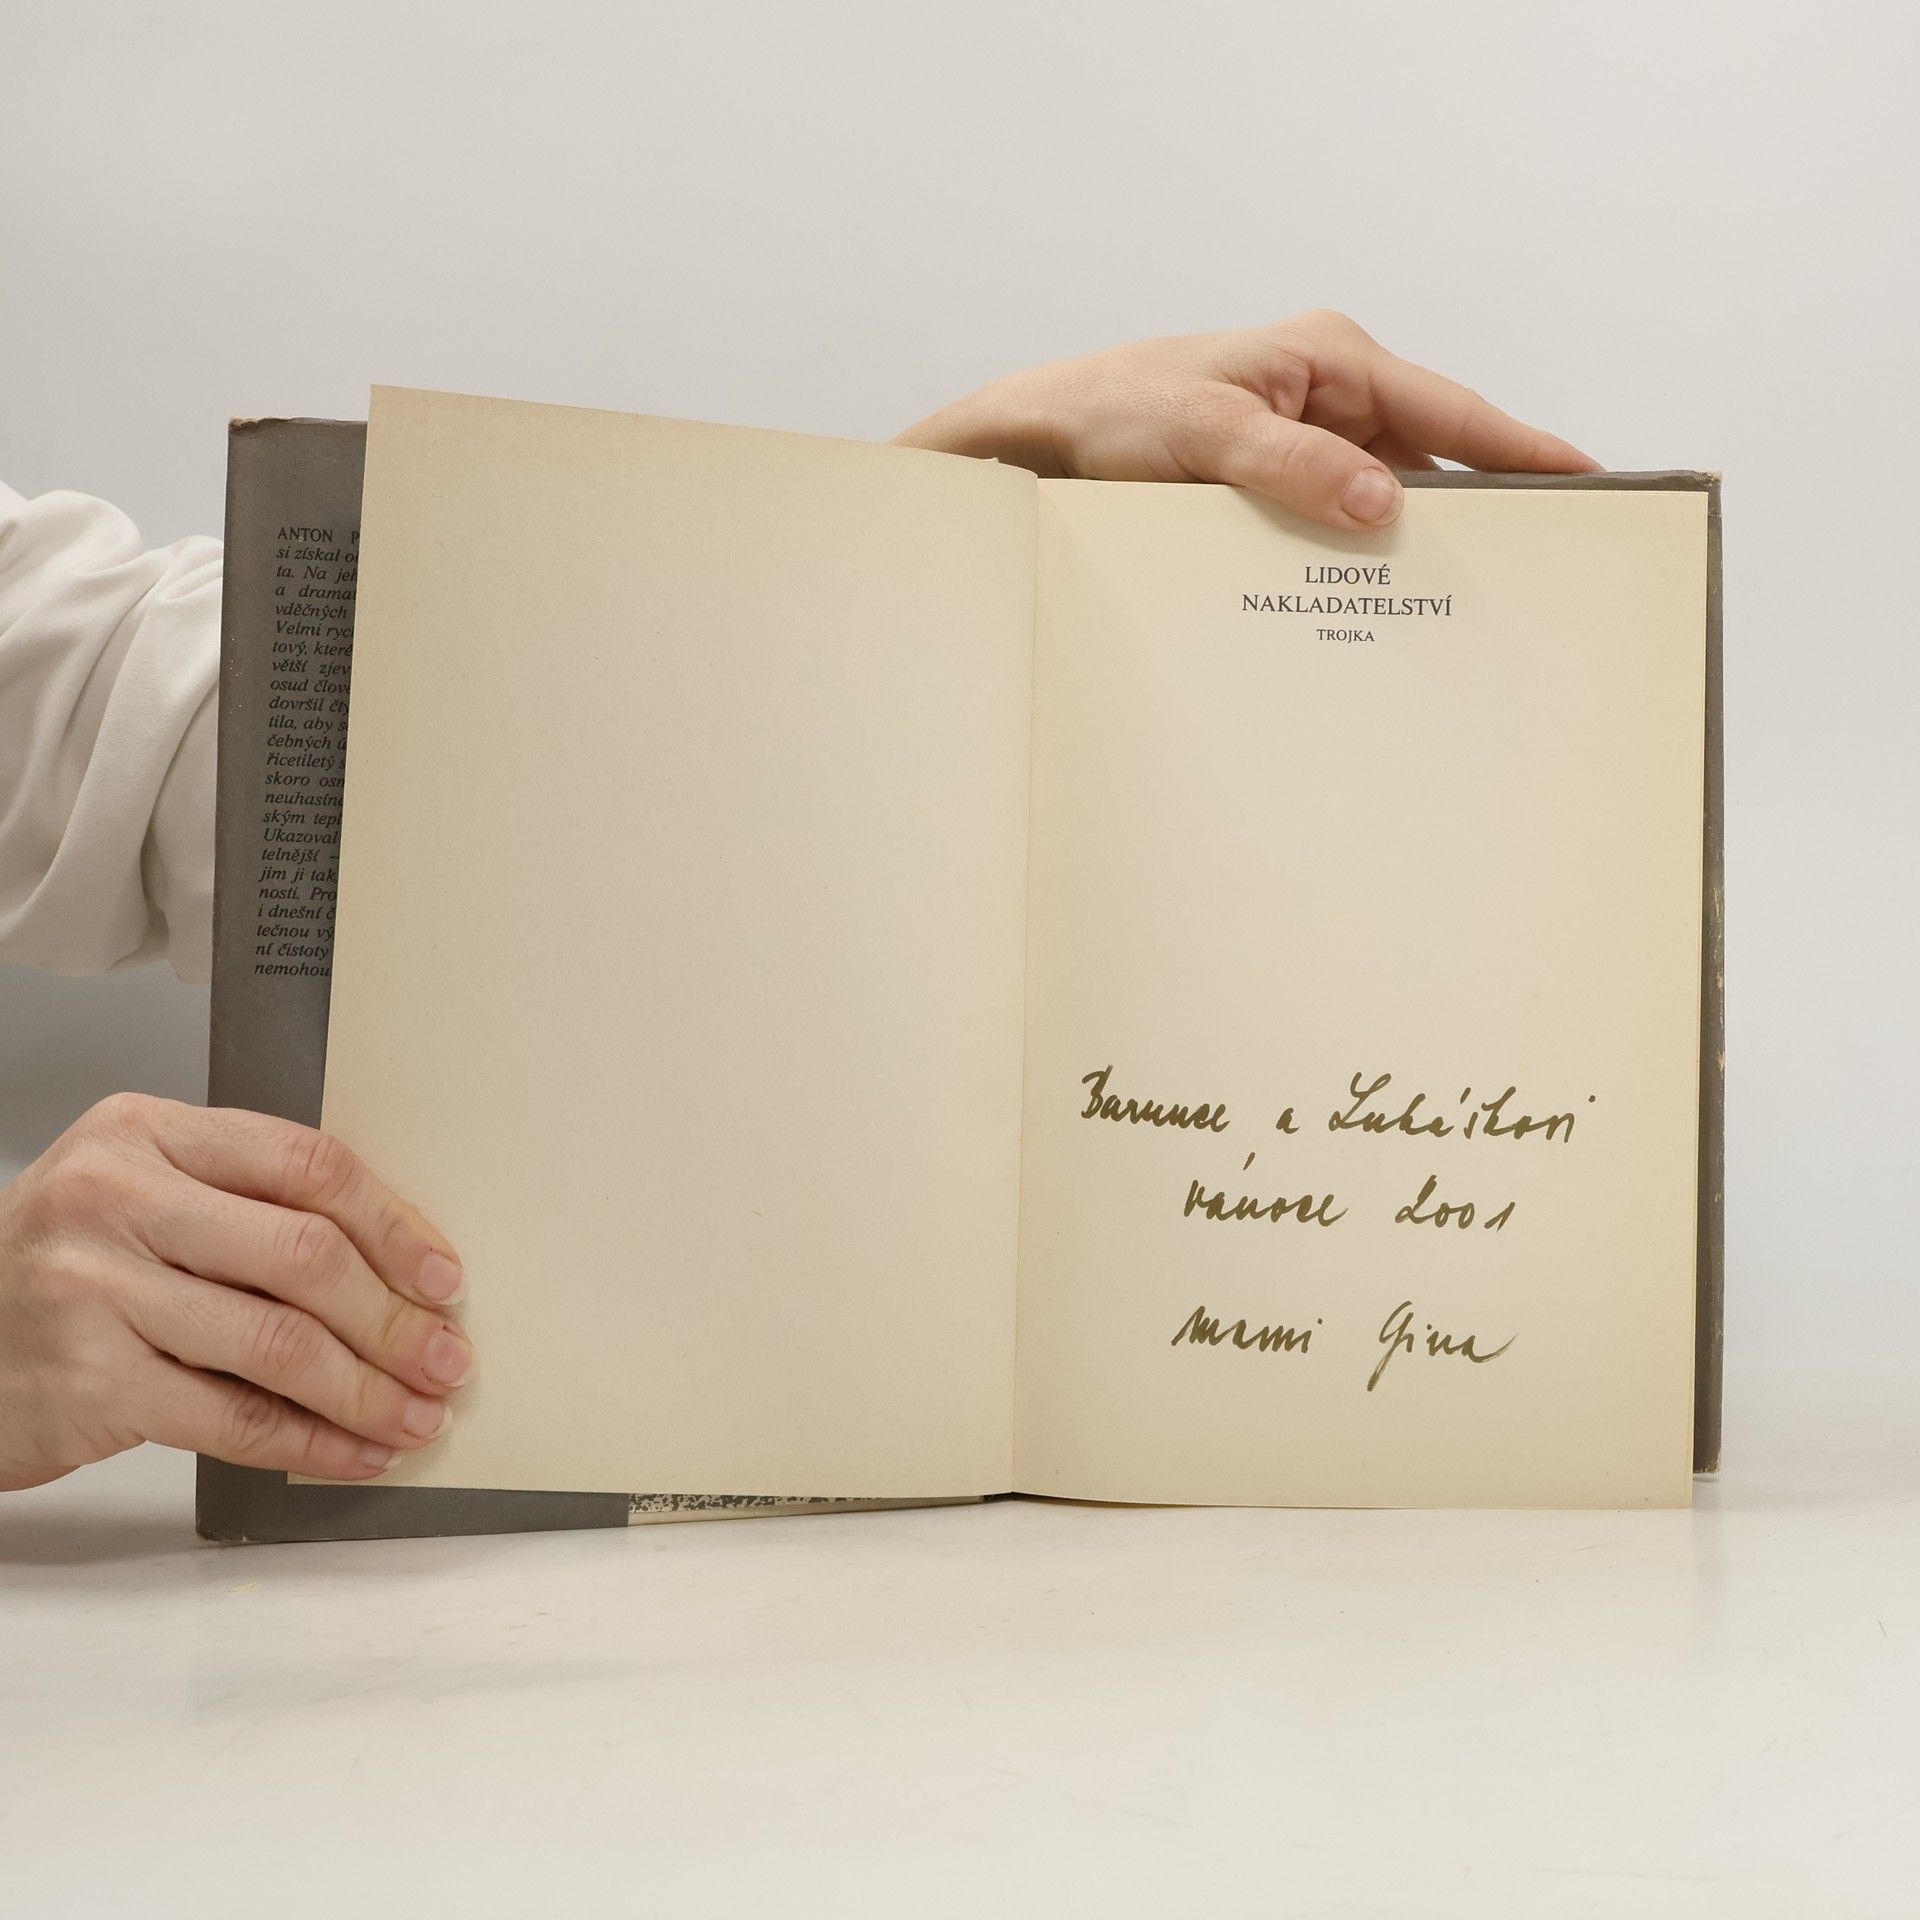 ANTON P
si získal o
ta. Na jeh
a dramat
vděčných
Velmi ryc
tový, které
větší zjev
osud člove
dovršil čty
tila, aby s
čebných ú
řicetiletý s
skoro osm
neuhasína
ským tepl
Ukazoval
telnější –
jim ji tak,
nosti. Pro
i dnešní č
tečnou vý
ní čistoty
nemohou
LIDOVÉ
NAKLADATELSTVÍ
TROJKA
Barunce a Lukáškovi
vánoce 2001
mami Gina